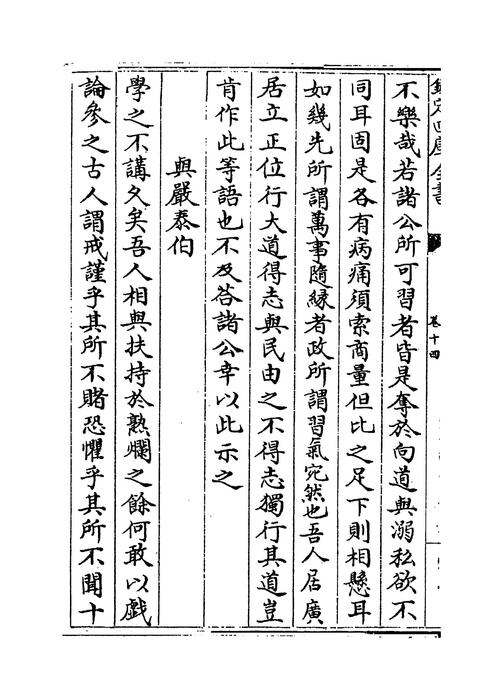 欽定四庫全書
卷十四
不樂哉若諸公所可習者皆是奪於向道與溺私欲不
同耳固是各有病痛須索商量但比之足下則相懸耳
如幾先所謂萬事隨緣者政所謂習氣宛然也吾人居廣
居立正位行大道得志與民由之不得志獨行其道豈
肯作此等語也不及荅諸公幸以此示之
與嚴泰伯
學之不講久矣吾人相與扶持於熟爛之餘何敢以戯
論參之古人謂戒謹乎其所不睹恐懼乎其所不聞十